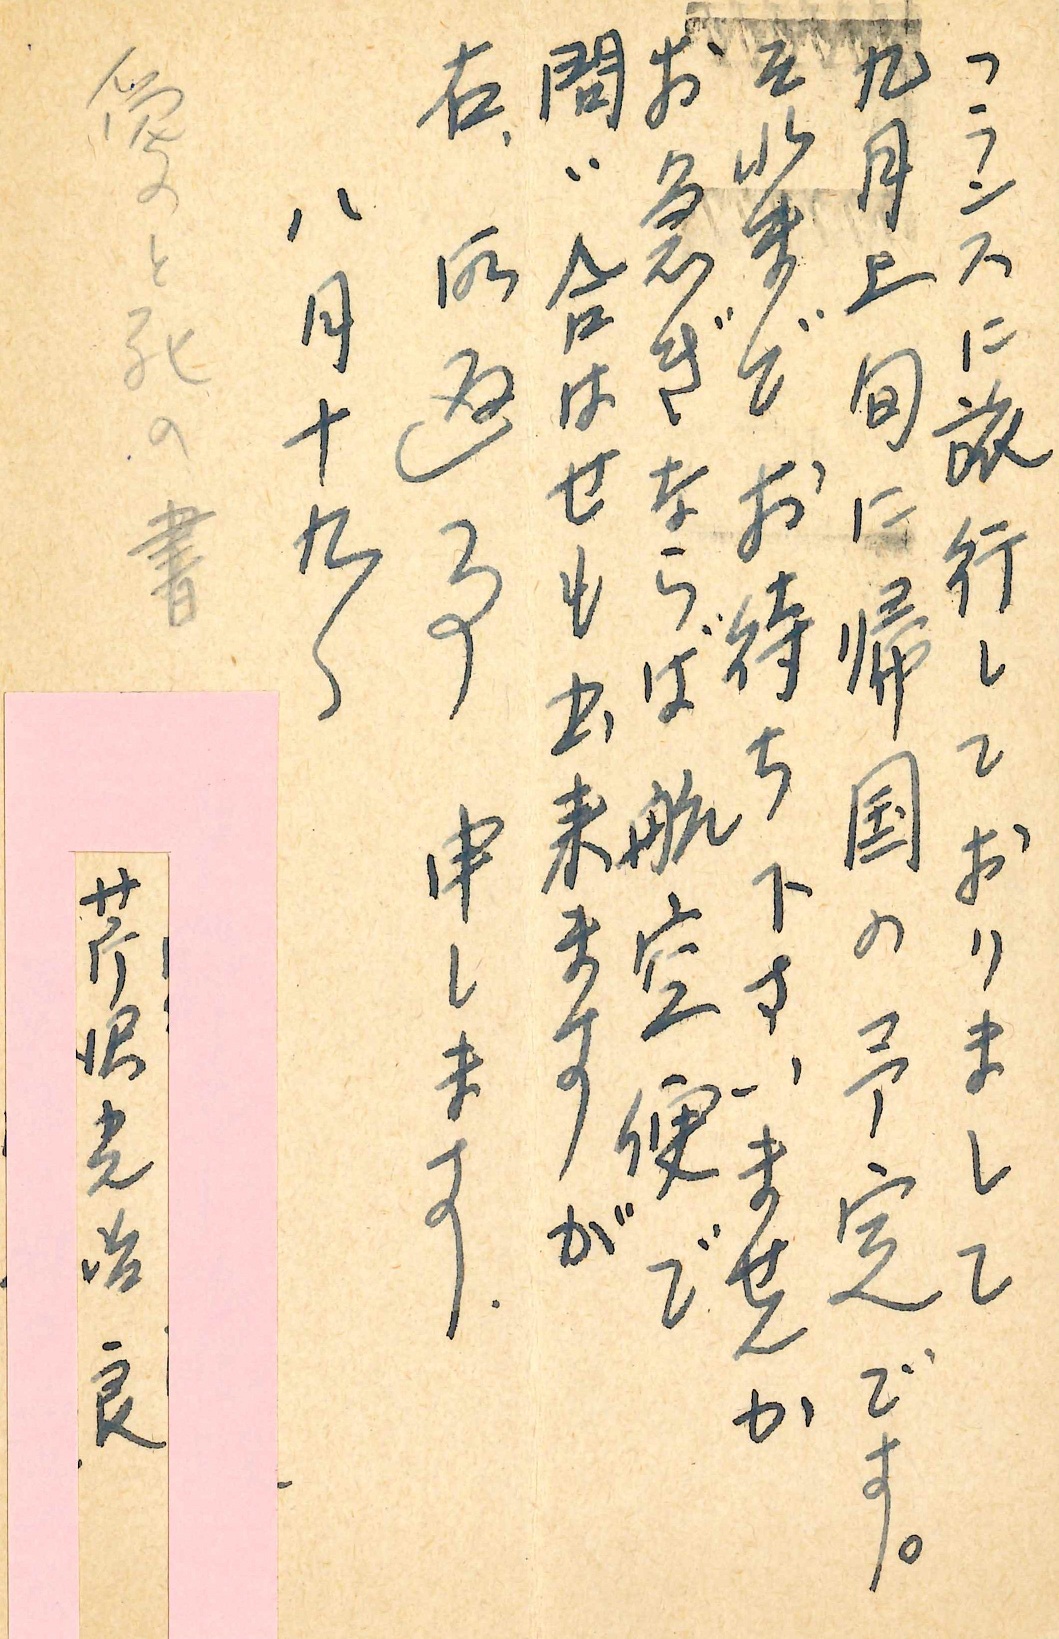 フランスに旅行しておりまして
九月上旬に帰国の予定です。
それまでお待ち下さいませんか
お急ぎならば航空便で
問ひ合はせも出来ますが
右、御返事申します.
八月十九日
愛と死の書
芹沢光治良